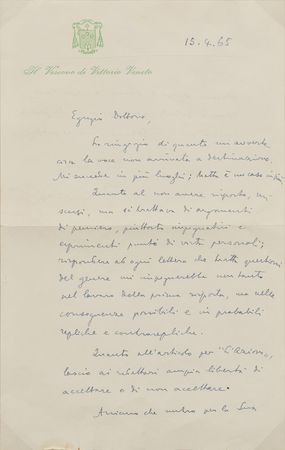 15.4.65
Il Vescovo di Vittorio Veneto
Egregio Dottore,
La ringrazio di quanto mi avverte
circa la voce non arrivata a destinazione.
Mi succede in più luoghi; tratta
Quanto al non avere risposto, mi
scusi, ma si trattava di argomenti
di pensiero, piuttosto impegnativi e
esprimenti punti di vista personali;
rispondere ad ogni lettera che tratta questioni
del genere mi impegnerebbe non tanto
nel lavoro della prima risposta, ma nelle
conseguenze possibili e in probabili
repliche e controrepliche.
Quanto all'articolo per "L'Azione",
lascio ai redattori ampia libertà di
accettare o di non accettare.
che per la Sua